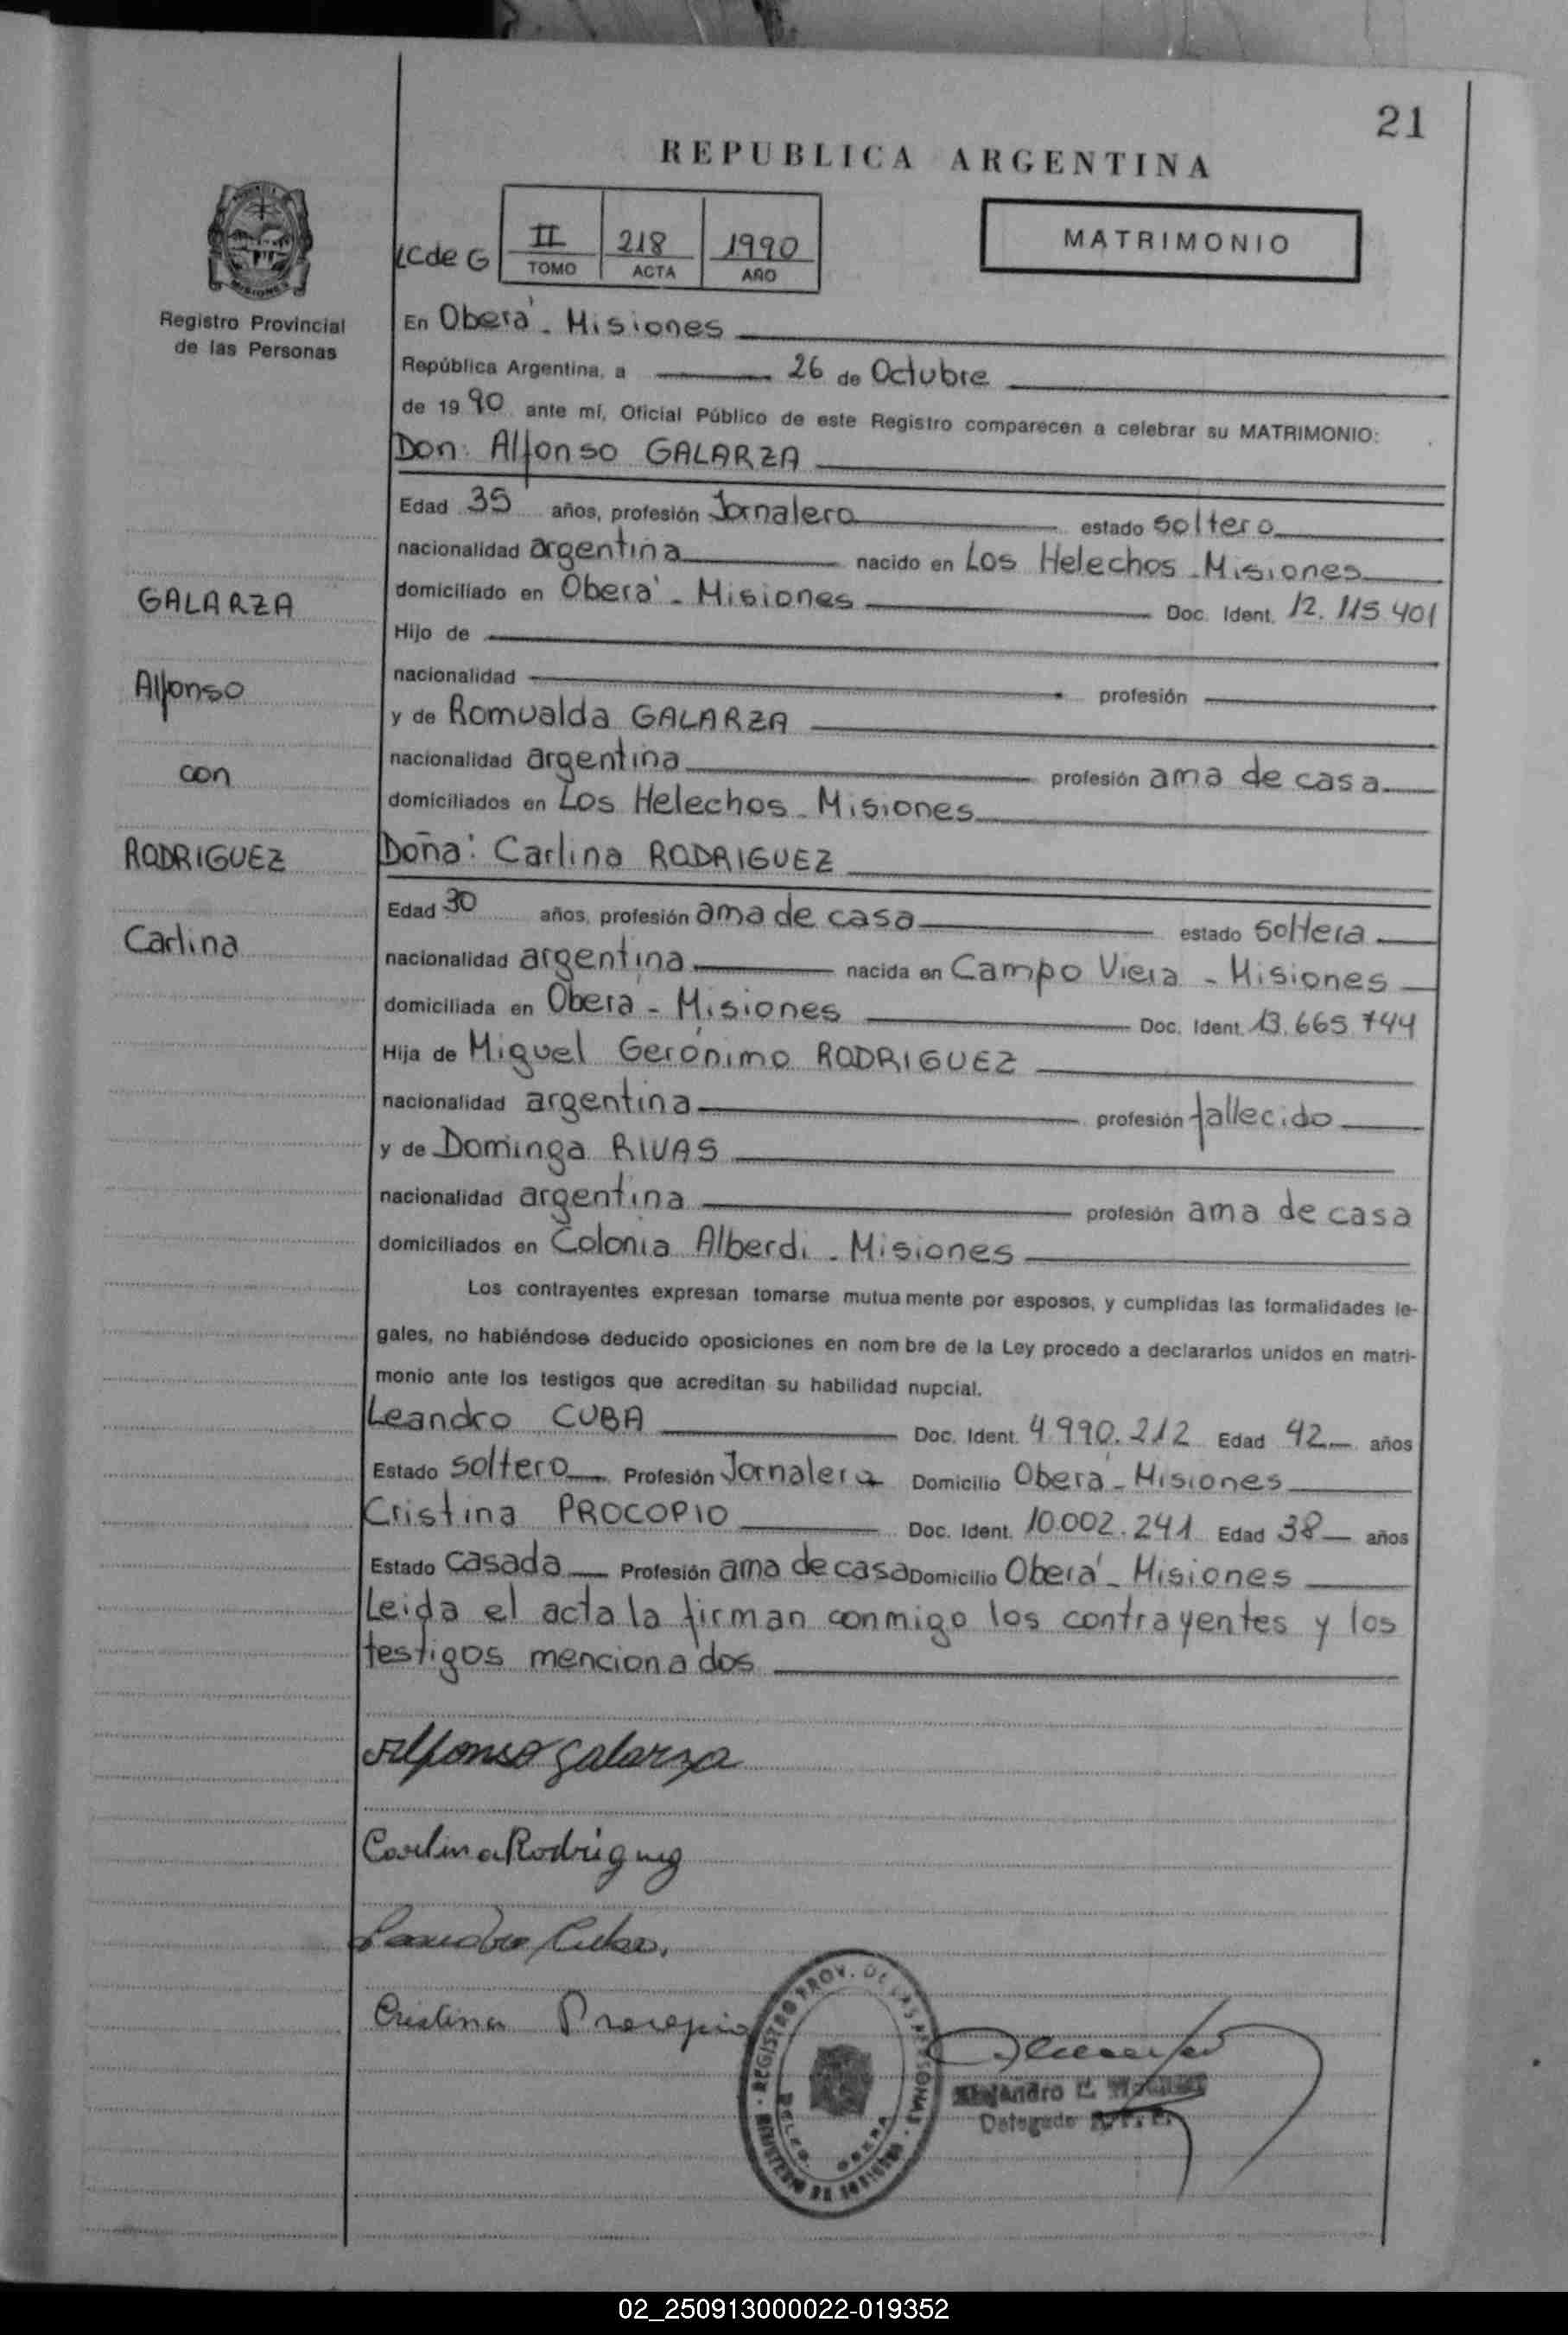 21
REPUBLICA ARGENTINA
MISIONES
Registro Provincial
de las Personas
LC de G
II 218 1990
TOMO ACTA AÑO
MATRIMONIO
En Oberá - Misiones
República Argentina, a 26 de Octubre
de 1990 ante mí, Oficial Público de este Registro comparecen a celebrar su MATRIMONIO:
Don: Alfonso GALARZA
Edad 35 años, profesión Jornalero estado soltero
nacionalidad argentina nacido en Los Helechos - Misiones
domiciliado en Oberá - Misiones Doc. Ident. 12.115.401
Hijo de
nacionalidad profesión
y de Romualda GALARZA
nacionalidad argentina profesión ama de casa
domiciliados en Los Helechos - Misiones
Doña: Carlina RODRIGUEZ
Edad 30 años, profesión ama de casa estado soltera
nacionalidad argentina nacida en Campo Viera - Misiones
domiciliada en Oberá - Misiones Doc. Ident. 13.665.744
Hija de Miguel Gerónimo RODRIGUEZ
nacionalidad argentina profesión fallecido
y de Dominga RIVAS
nacionalidad argentina profesión ama de casa
domiciliados en Colonia Alberdi - Misiones
GALARZA
Alfonso
con
RODRIGUEZ
Carlina
Los contrayentes expresan tomarse mutua mente por esposos, y cumplidas las formalidades le-
gales, no habiéndose deducido oposiciones en nom bre de la Ley procedo a declararlos unidos en matri-
monio ante los testigos que acreditan su habilidad nupcial.
Leandro CUBA Doc. Ident. 4.990.212 Edad 42 años
Estado soltero Profesión Jornalero Domicilio Oberá - Misiones
Cristina PROCOPIO Doc. Ident. 10.002.241 Edad 38 años
Estado casada Profesión ama de casa Domicilio Oberá - Misiones
Leida el acta la firman conmigo los contrayentes y los
testigos mencionados
Alfonso Galarza
Carlina Rodriguez
Leandro Cuba.
Cristina Procopio
REGISTRO PROV. DE LAS PERSONAS
MINISTERIO DE GOBIERNO
DELEG. OBERA
Alejandro
Delegado R. P. P.
02_250913000022-019352